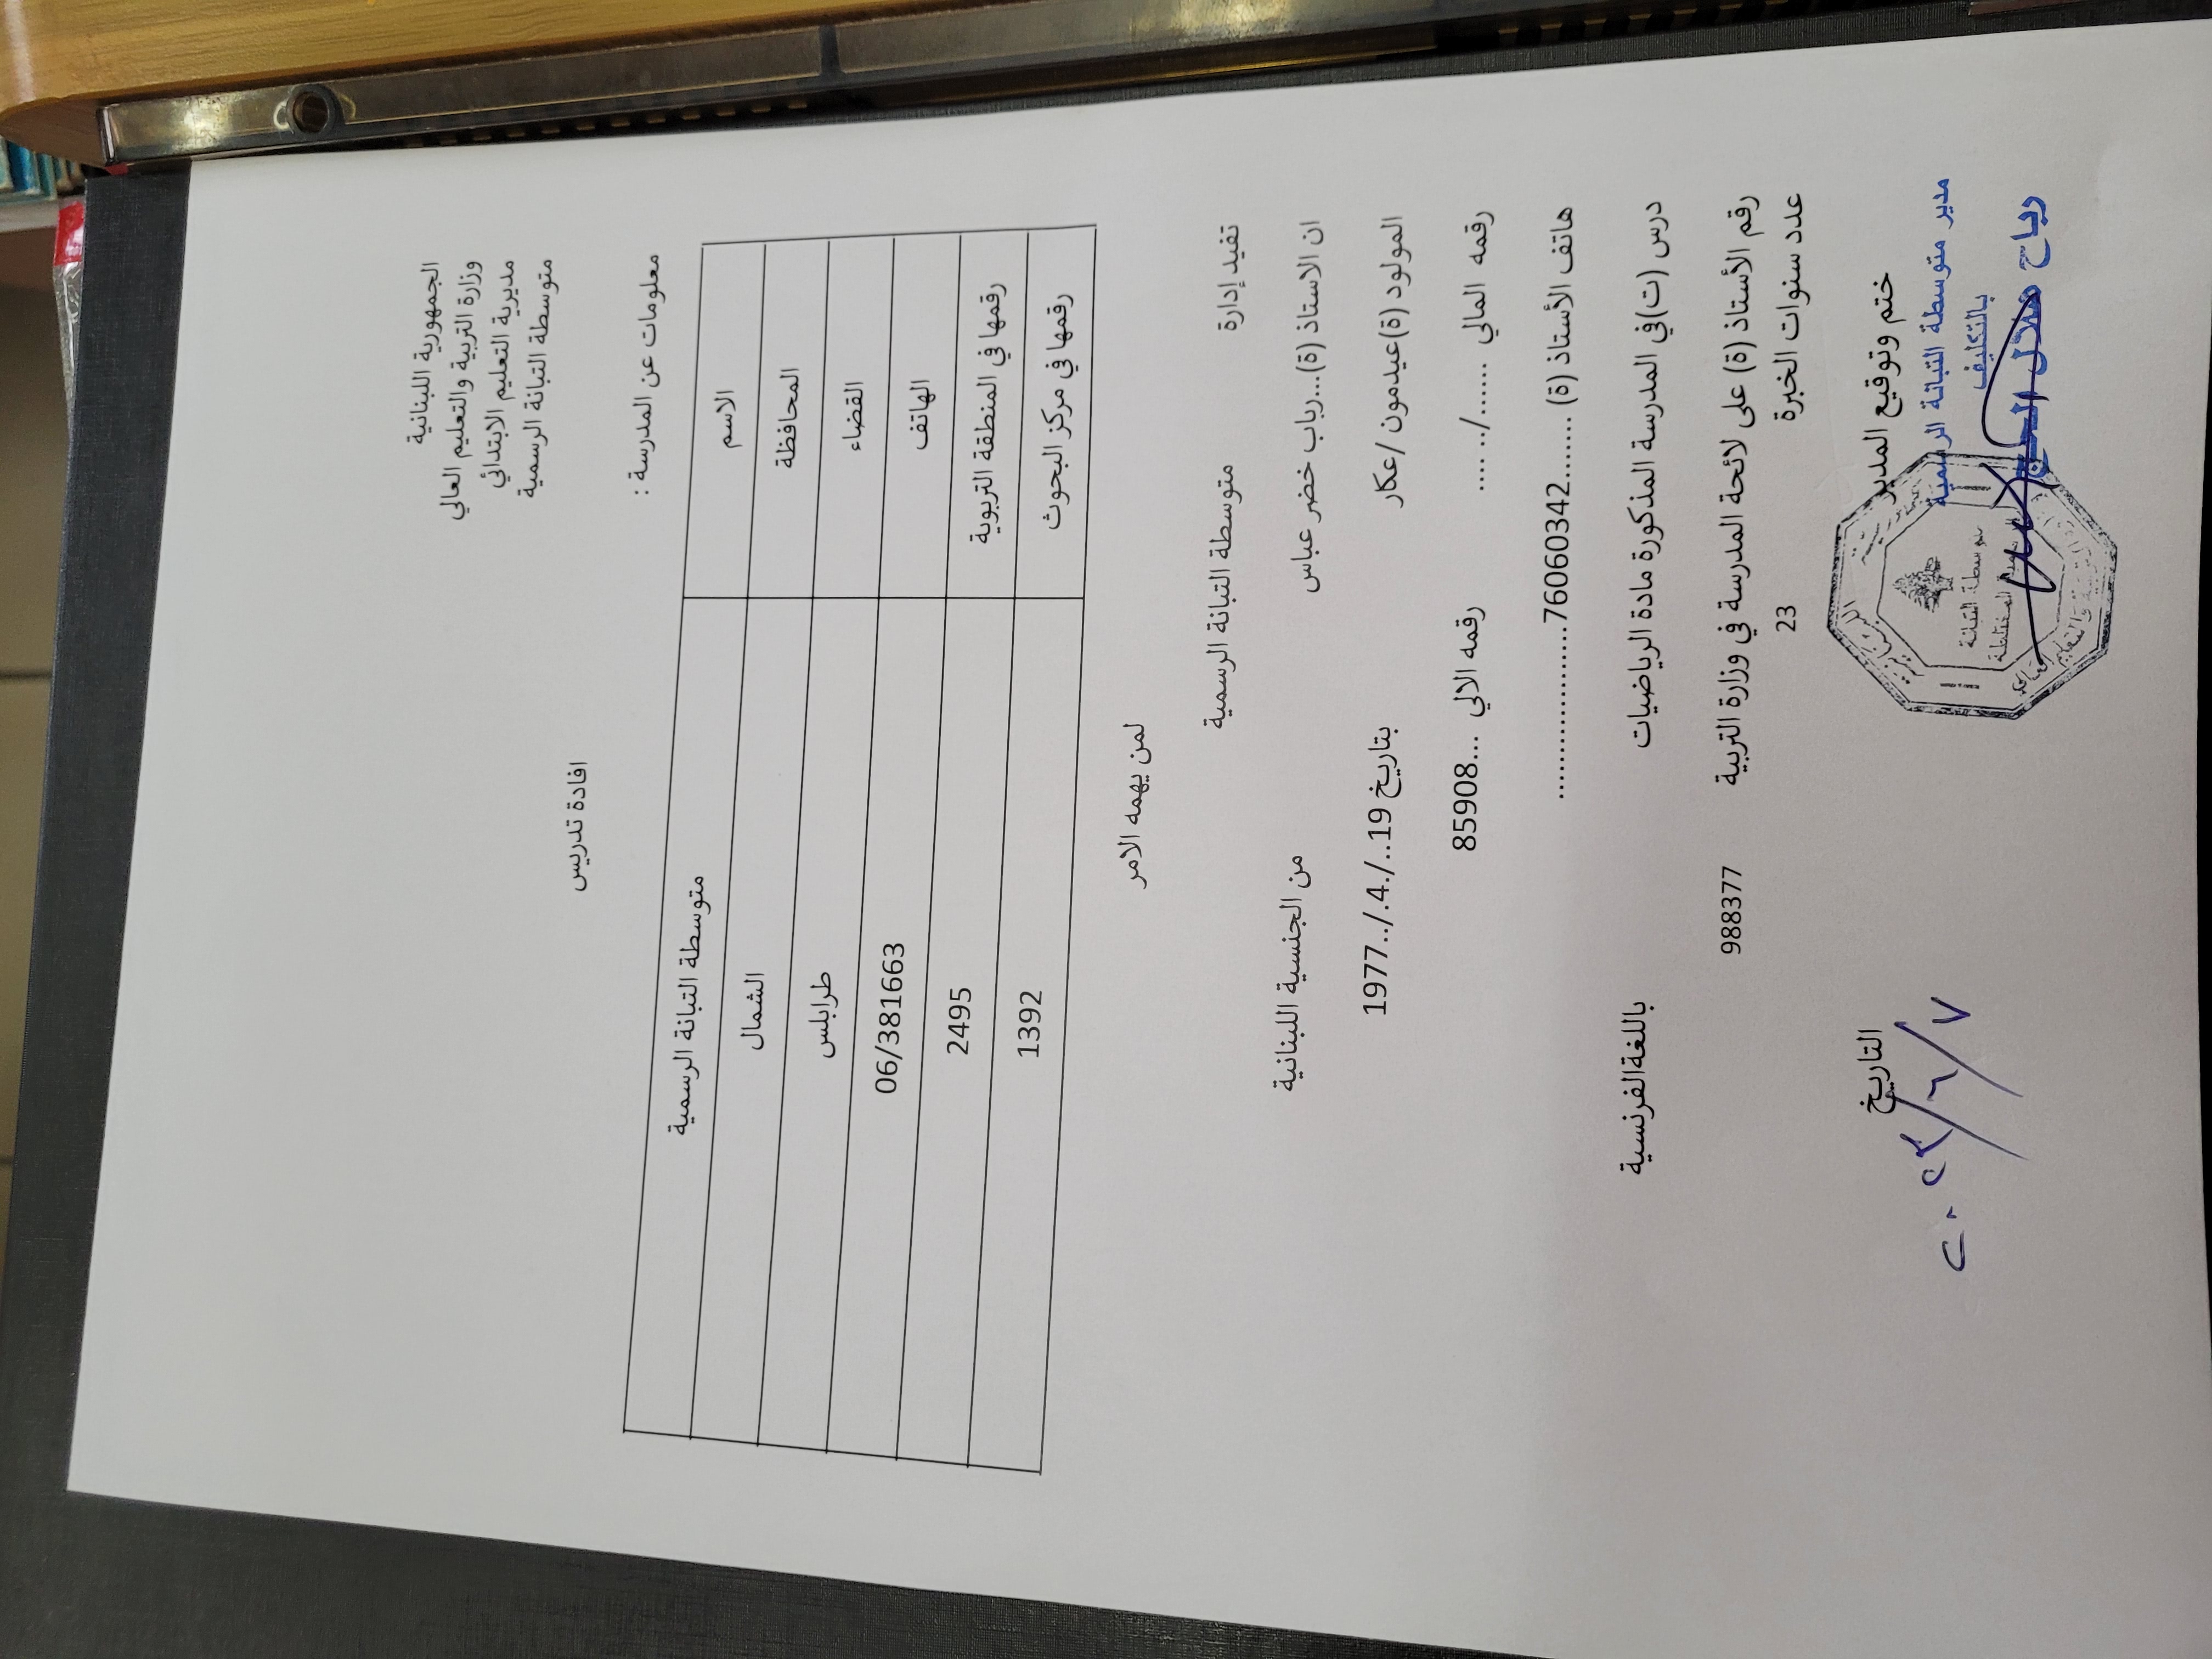 الجمهورية اللبنانية
وزارة التربية والتعليم العالي
مديرية التعليم الابتدائي
متوسطة التبانة الرسمية
افادة تدريس
معلومات عن المدرسة :
الاسم متوسطة التبانة الرسمية
المحافظة الشمال
القضاء طرابلس
الهاتف 06/381663
رقمها في المنطقة التربوية 2495
رقمها في مركز البحوث 1392
لمن يهمه الامر
تفيد إدارة متوسطة التبانة الرسمية
ان الاستاذ (ة)...رباب خضر عباس من الجنسية اللبنانية
المولود (ة)عيدمون /عكار بتاريخ 19../.4./..1977
رقمه المالي ....../..... رقمه الالي ...85908
هاتف الأستاذ (ة) .......76060342......................
درس (ت)في المدرسة المذكورة مادة الرياضيات باللغةالفرنسية
رقم الأستاذ (ة) على لائحة المدرسة في وزارة التربية 988377
عدد سنوات الخبرة 23
ختم وتوقيع المدير التاريخ
مدير متوسطة التبانة الرسمية
بالتكليف
رباح هلال الحج
متوسطة التبانة
المختلطة